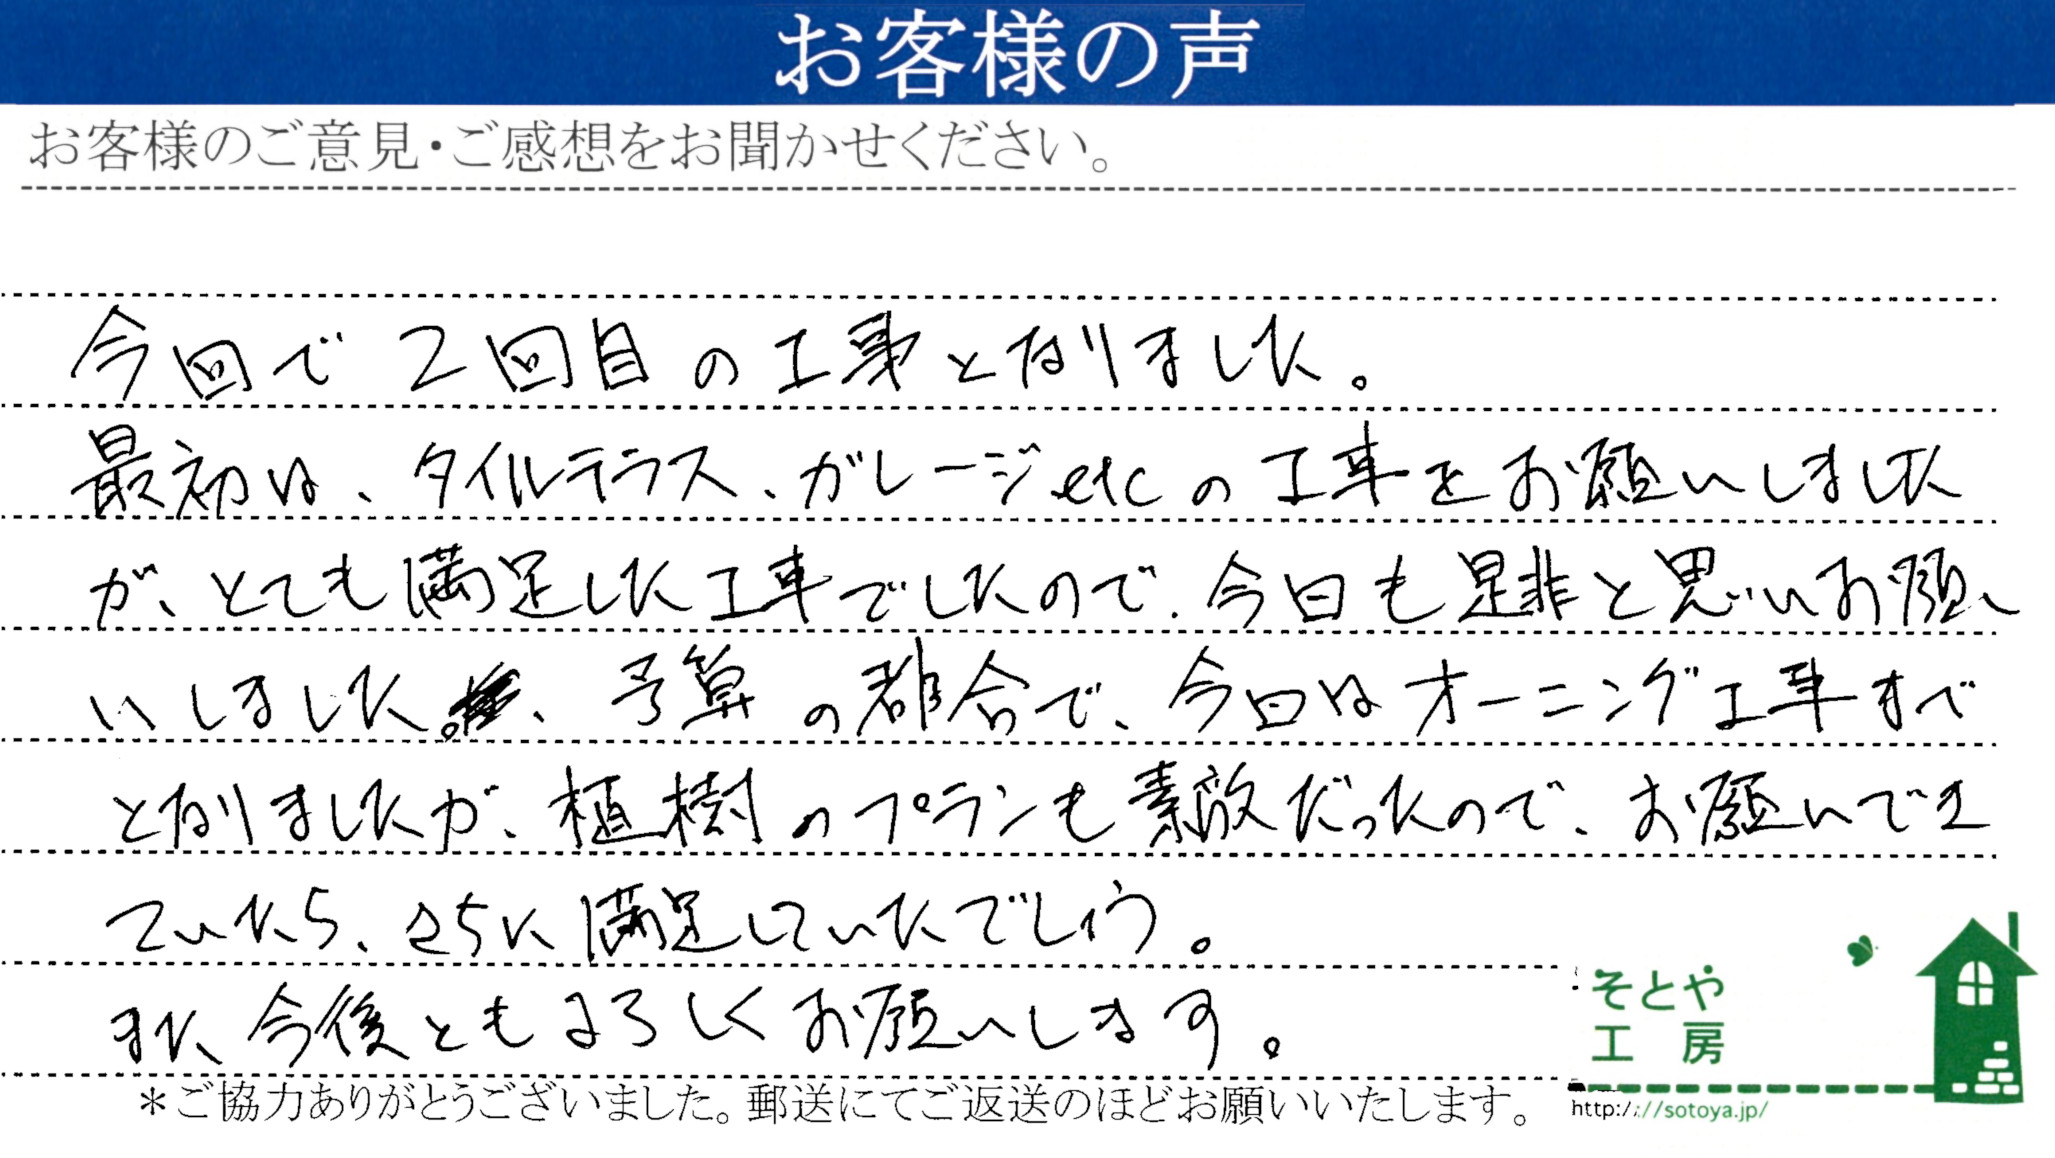 お客様の声
お客様のご意見・ご感想をお聞かせください。
今回で2回目の工事となりました。
最初は、タイルテラス、ガレージetcの工事をお願いしました
が、とても満足した工事でしたので、今回も是非と思いお願
いしました。、予算の都合で、今回はオーニング工事まで
となりましたが、植樹のプランも素敵だったので、お願いでき
ていたら、さらに満足していたでしょう。
また、今後ともよろしくお願いします。
そとや
工房
＊ご協力ありがとうございました。郵送にてご返送のほどお願いいたします。
http:///sotoya.jp/